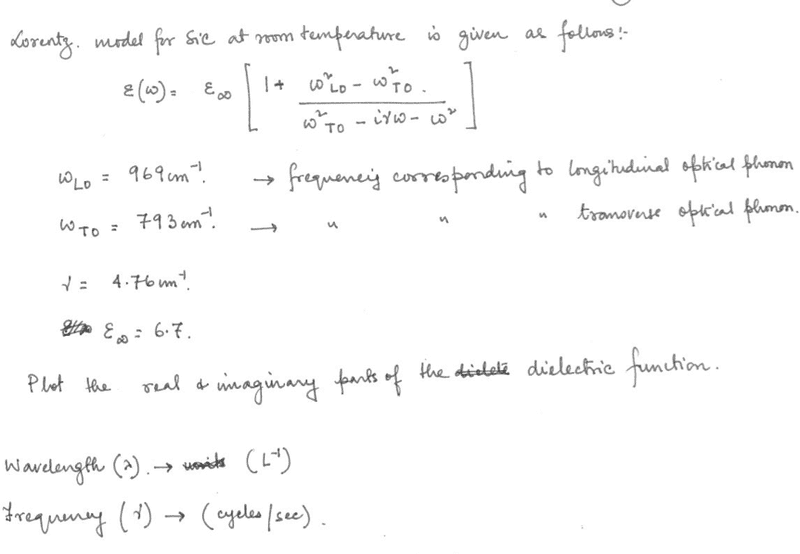 Lorentz. model for SiC at room temperature is given as follows:-
ε(ω) = ε∞ [ 1 + (ω²LO - ω²TO) / (ω²TO - iγω - ω²) ]
ωLO = 969 cm⁻¹. → frequencies corresponding to longitudinal optical phonon
ωTO = 793 cm⁻¹. → " " " transverse optical phonon.
γ = 4.76 cm⁻¹.
ε∞ = 6.7.
Plot the real & imaginary parts of the dielectric function.
Wavelength (λ). → (L⁻¹)
Frequency (γ) → (cycles/sec).